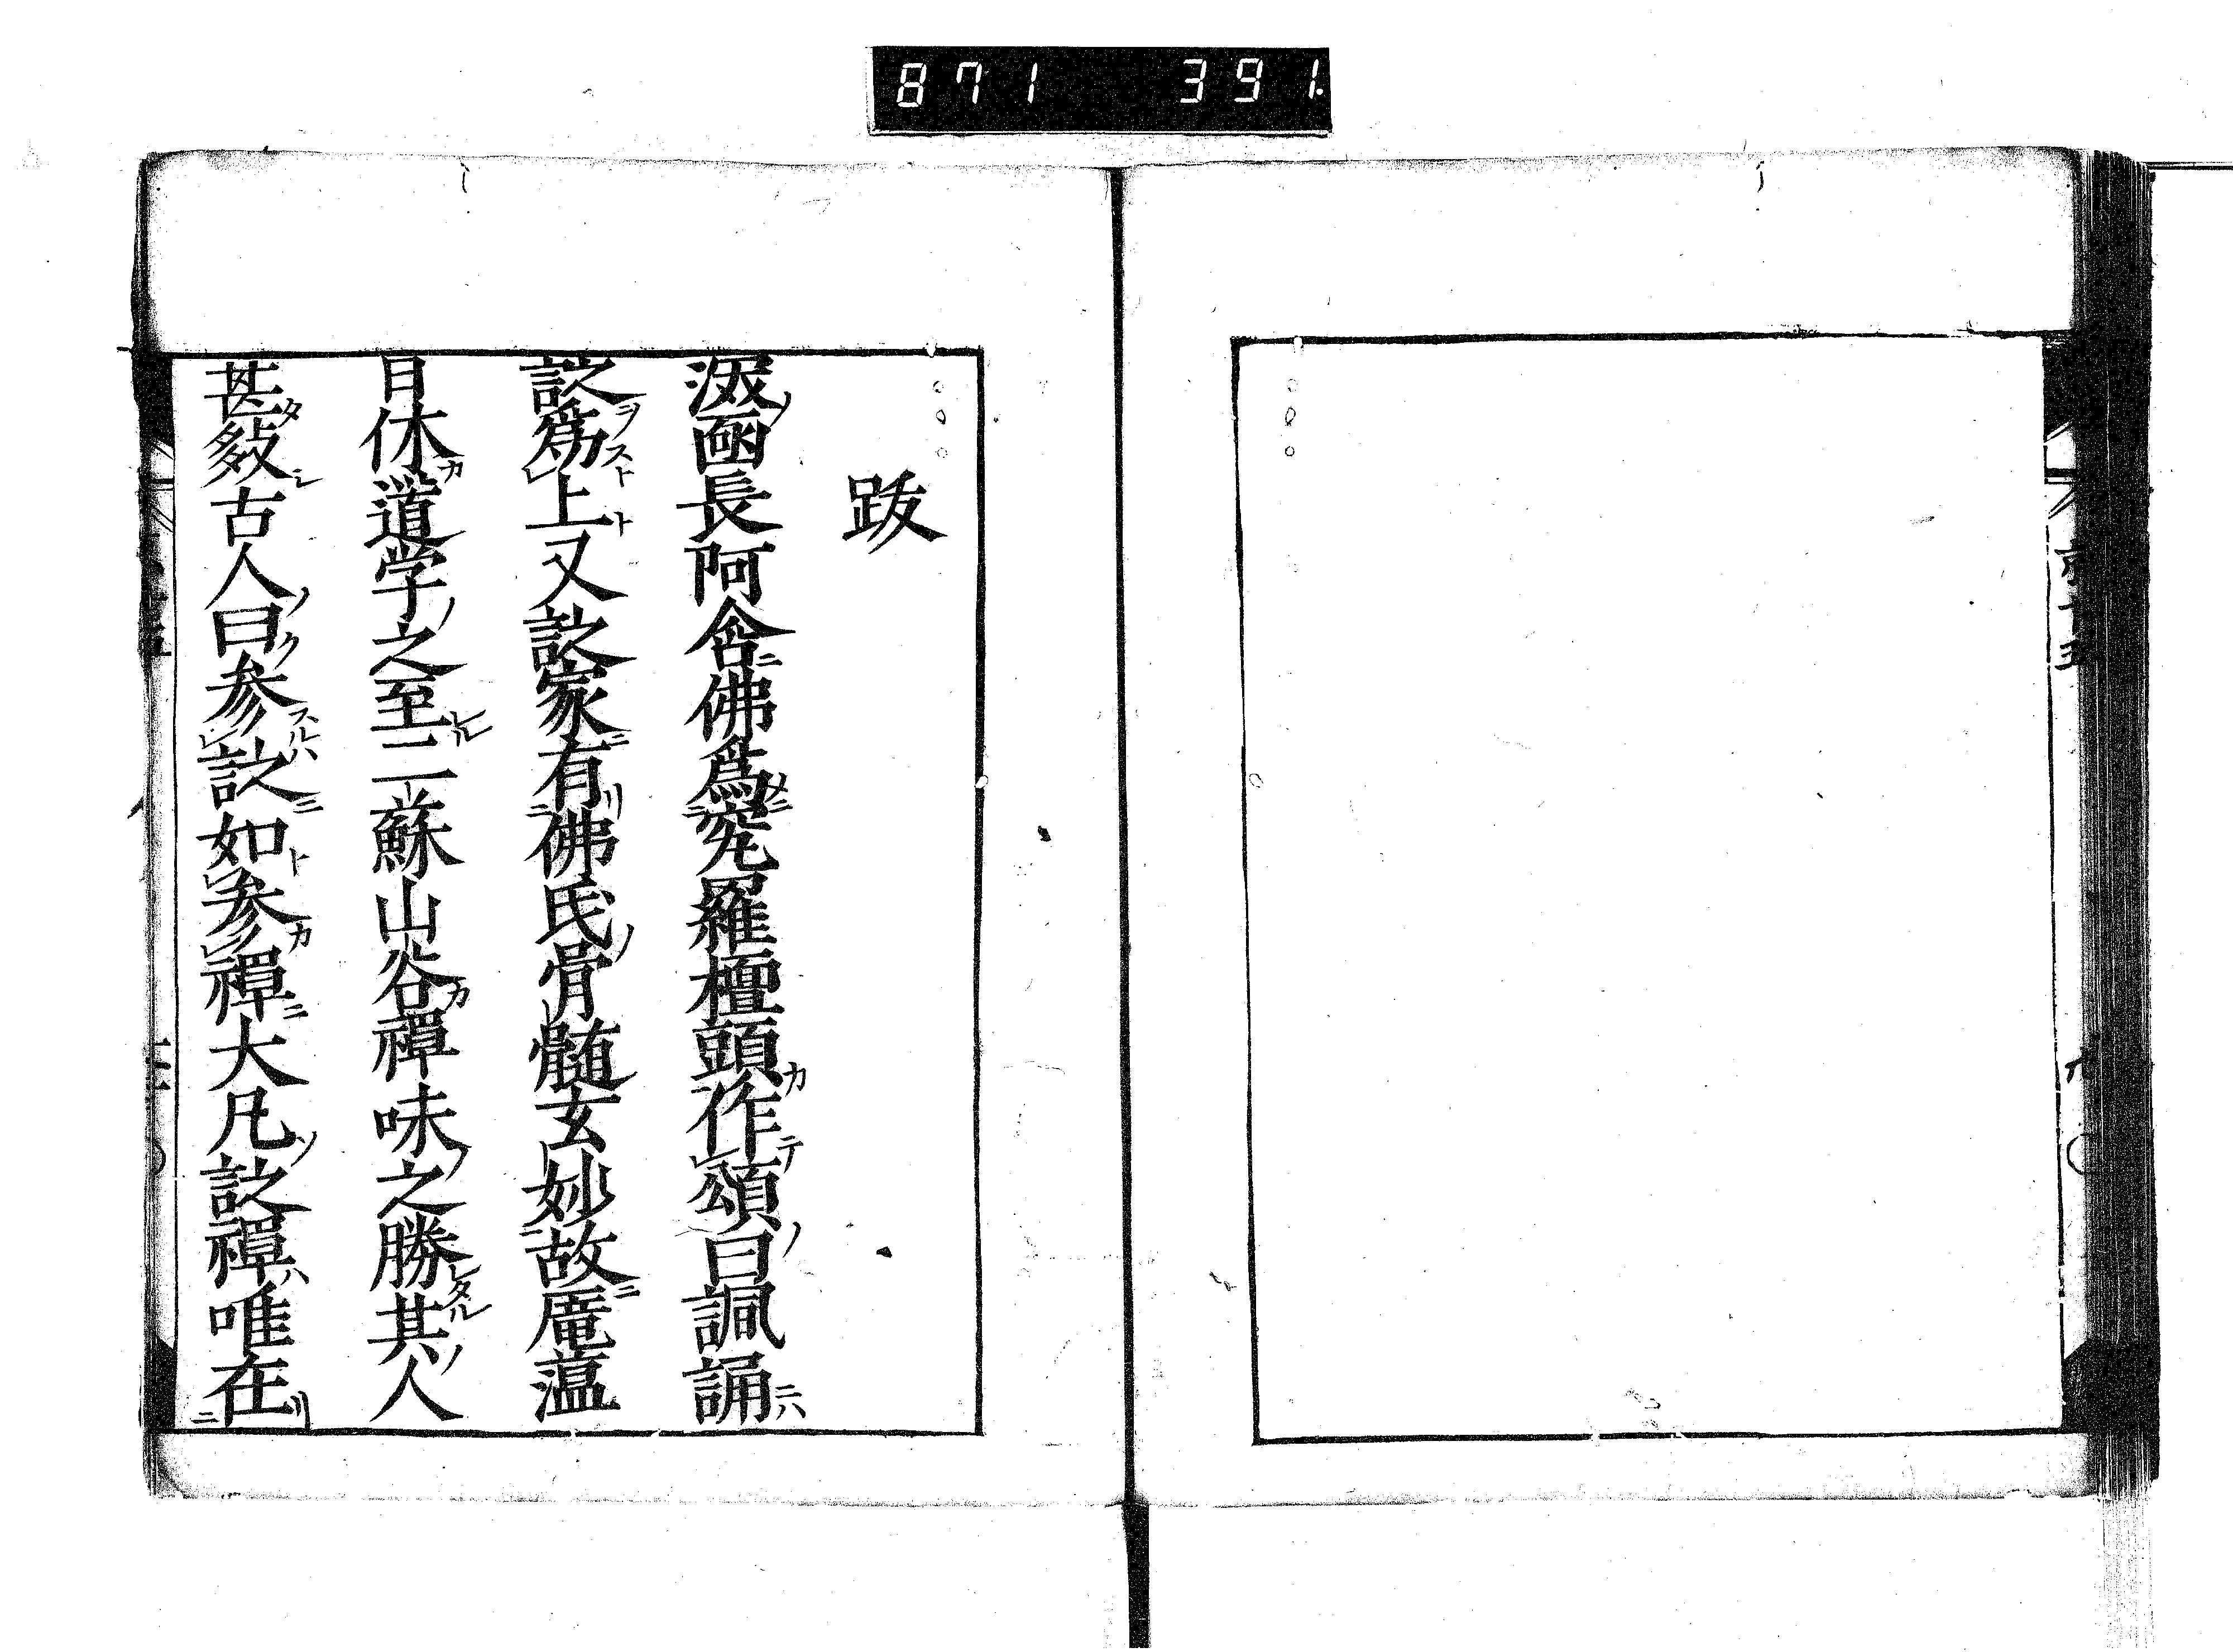 871 391
跋
淵函長阿含佛爲究羅檀頭作頌曰諷誦
詩爲上又詩家有佛氏骨髄玄妙故庵薀
日休道学之至二蘇山谷禪味之勝其人
甚古人曰参詩如参禪大凡詩禪唯在